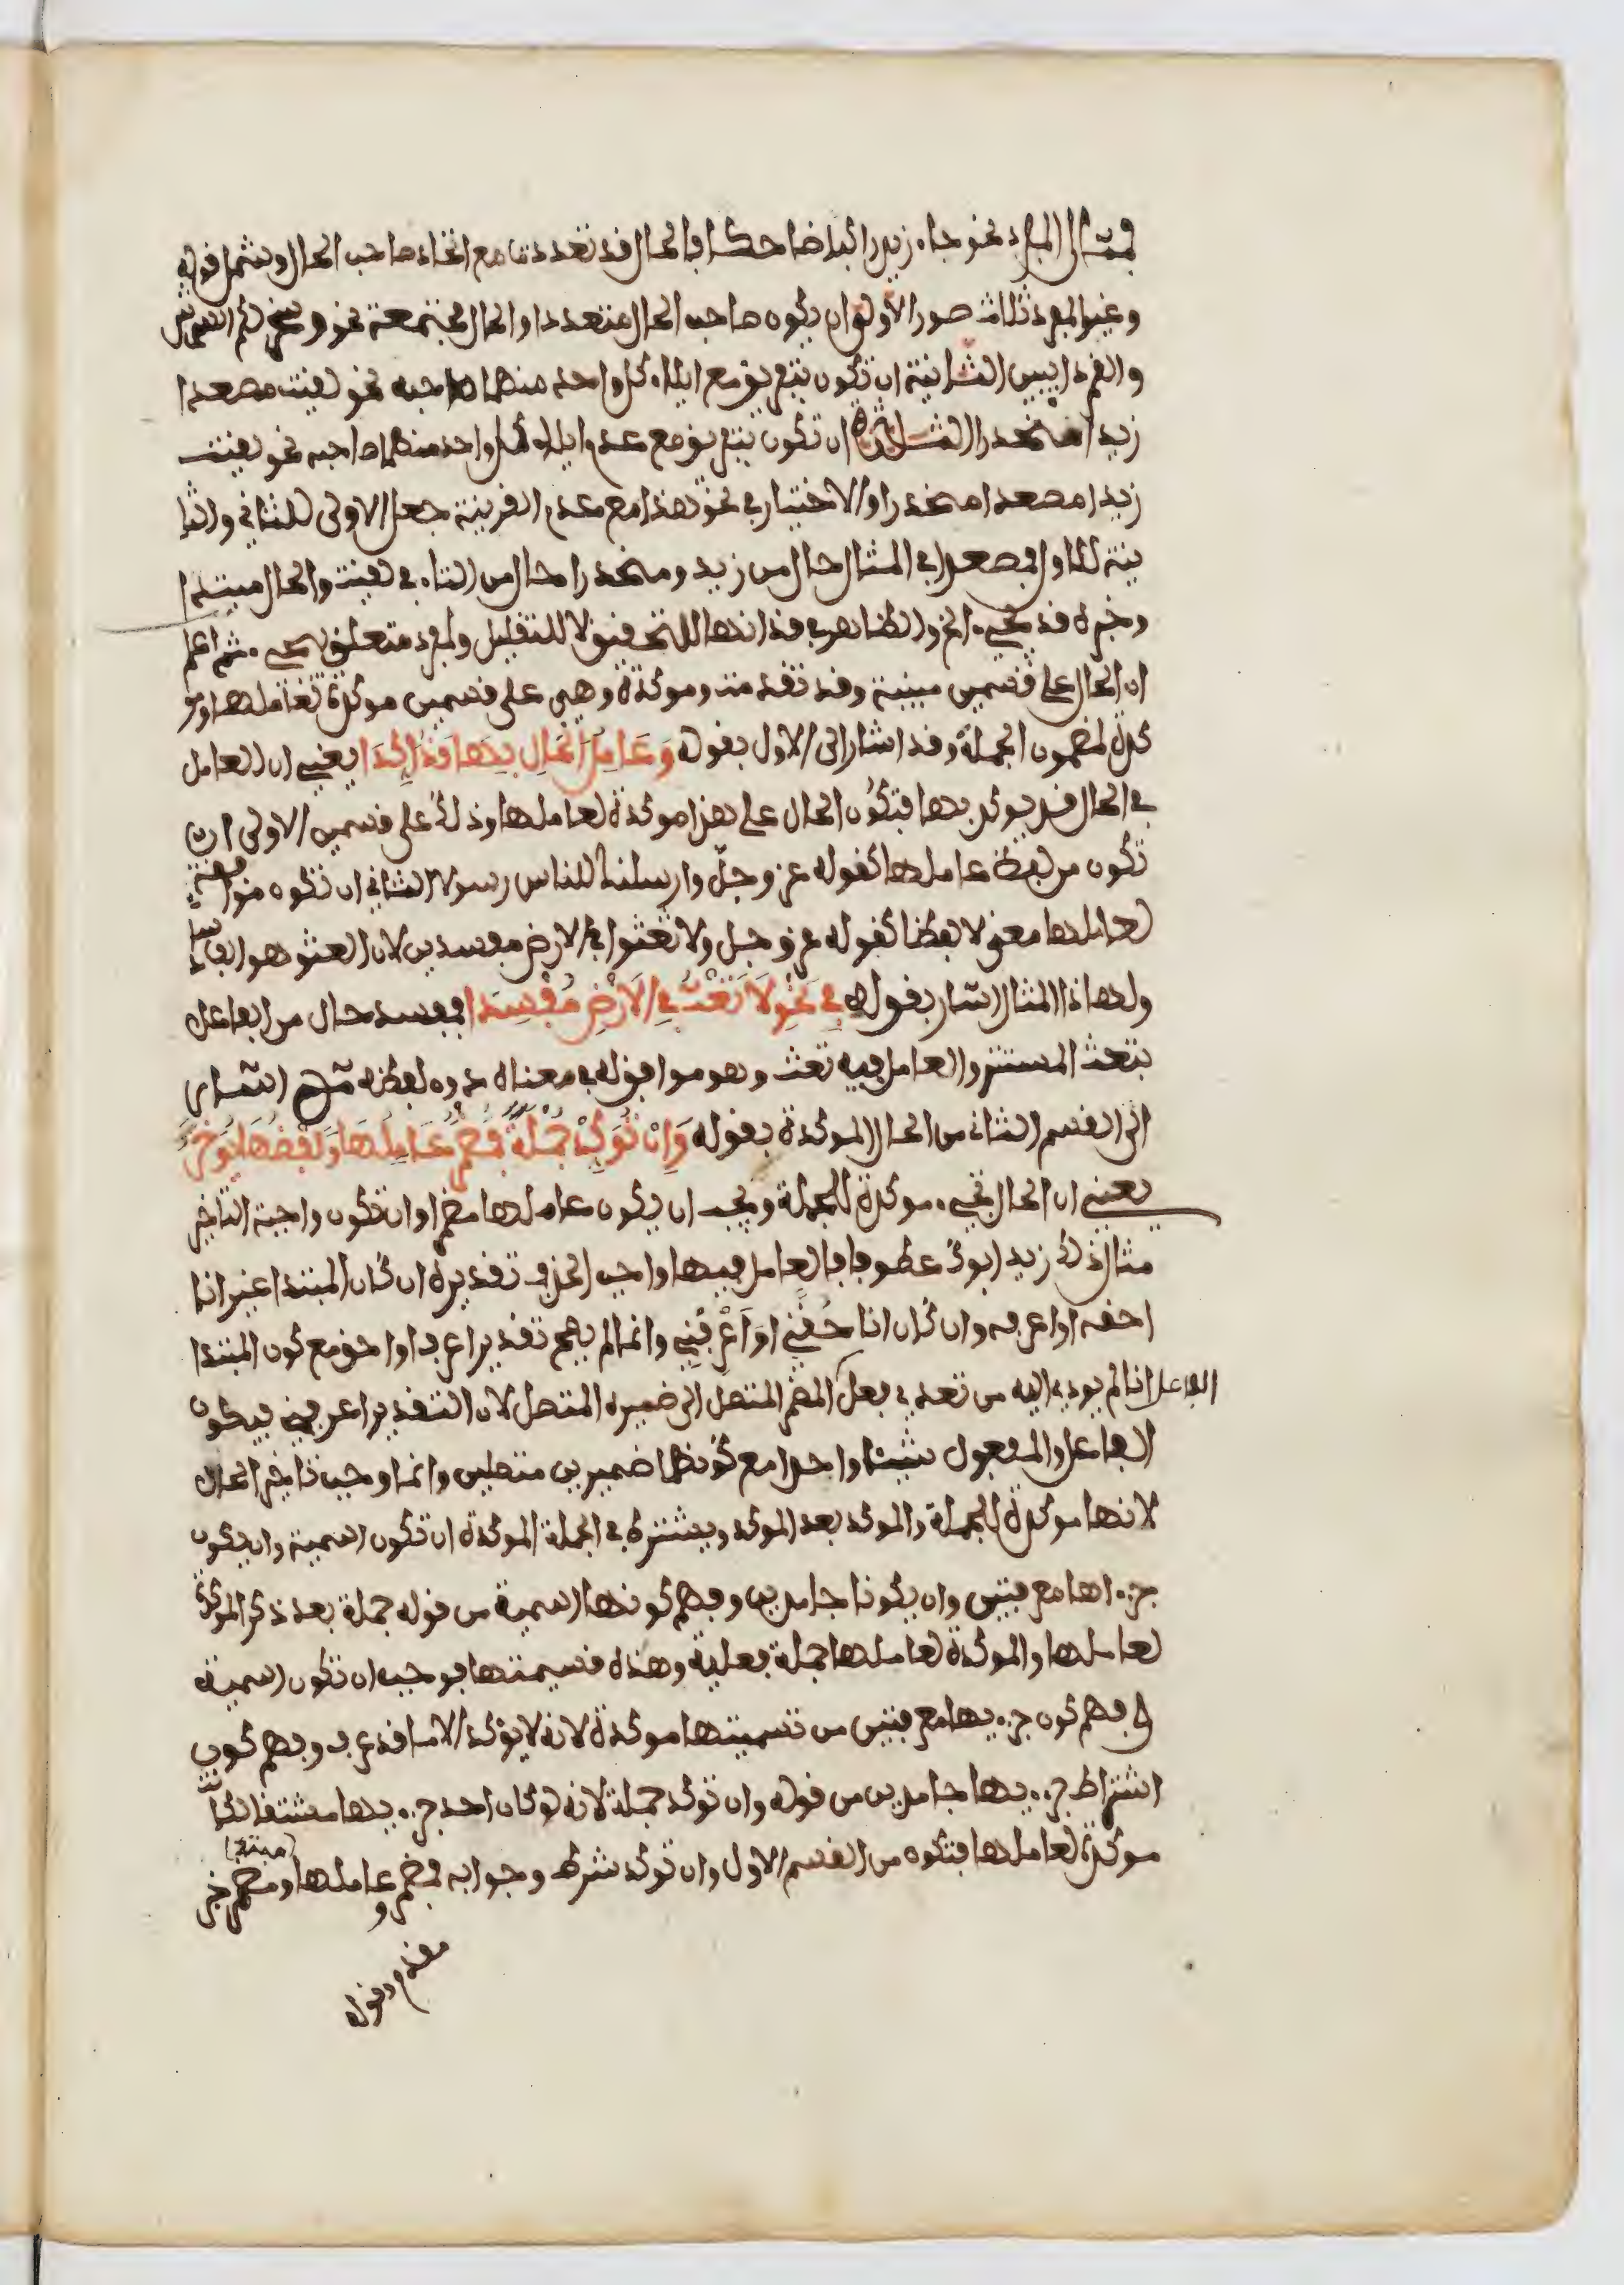 فمثال المفرد نحو جاء زيد راكبا ضاحكا فالحال قد تعددت مع اتحاد صاحب الحال وشمل قوله
وغير المفرد ثلاث صور الأولى ان يكون صاحب الحال متعددا والحال مجتمعة نحو وسخر لكم الشمس
والقمر دايبين الثانية ان تكون بتفريق مع ايلاء كل واحد منهما صاحبه نحو لقيت مصعدا
زيدا منحدرا الثالثة ان تكون بتفريق مع عدم ايلاء كل واحد منهما صاحبه نحو لقيت
زيدا مصعدا منحدرا والاختيار في نحو هذا مع عدم القرينة جعل الاولى للثاني والثا
نية للاول فمصعدا في المثال حال من زيد ومنحدرا حال من التاء في لقيت والحال مبتدا
وخبره قد يجيء الخ والظاهر في قد انها للتحقيق لا للتقليل ولمفرد متعلق بيجيء ثم اعلم
ان الحال على قسمين مبينة وقد تقدمت وموكدة وهي على قسمين موكدة لعاملها ومو
كدة لمضمون الجملة وقد اشار الى الاول بقوله وَعَامِلُ الحَالِ بِهَا قَدْ أُكِّدَا يعني ان العامل
في الحال قد يوكد بها فتكون الحال على هذا موكدة لعاملها وذلك على قسمين الاولى ان
تكون من لفظ عاملها كقوله عز وجل وارسلناك للناس رسولا الثاني ان تكون موافقة
لعاملها معنى لا لفظا كقوله عز وجل ولا تعثوا في الارض مفسدين لان العثو هو الفساد
ولهاذا المثال اشار بقوله فِي نَحْوِ لَا تَعْثَ فِي الأَرْضِ مُفْسِدَا فمفسدا حال من الفاعل
بتعث المستتر والعامل فيه تعث وهو موافق له في معناه دون لفظه ثم اشار
الى القسم الثاني من الحال الموكدة بقوله وَإِنْ تُوَكِّدْ جُمْلَةً فَمُضْمَرُ عَامِلُهَا وَلَفْظُهَا يُوَخَّرُ
يعني ان الحال تجيء موكدة للجملة ويجب ان يكون عاملها مضمرا وان تكون واجبة التاخير
مثال ذلك زيد ابوك عطوفا فالعامل فيها واجب الحذف تقديره ان كان المبتدا غير انا
احقه او اعرفه وان كان انا حُقَّنِي أو اعْرِفْنِي وانما لم يصح تقدير اعرف او احق مع كون المبتدا
انا لم يودي اليه من تعدي فعل الفاعل المضمر المتصل الى ضميره المتصل لان التقدير اعرفني فيكون
الفاعل والمفعول شيئا واحدا مع كونهما ضميرين متصلين وانما وجب تاخير الحال
لانها موكدة للجملة والموكد بعد الموكد ويشترط في الجملة الموكدة ان تكون اسمية وان يكون
جزءاها معرفتين وان يكونا جامدين وفهم كونها اسمية من قوله جملة بعد ذكر الموكدة
لعاملها والموكدة لعاملها جملة فعلية وهذه قسيمتها فوجب ان تكون اسمية
وفهم كون جزءيها معرفتين من تسميتها موكدة لانه لا يؤكد الا ما قد عرف وفهم كون
اشتراط جزءيها جامدين من قوله وان توكد جملة لانه لو كان احد جزءيها مشتقا لكانت
موكدة لعاملها فتكون من القسم الاول وان توكد شرط وجوابه فمضمر وعاملها مبتدا ومضمر خبر
مقدم وقوله